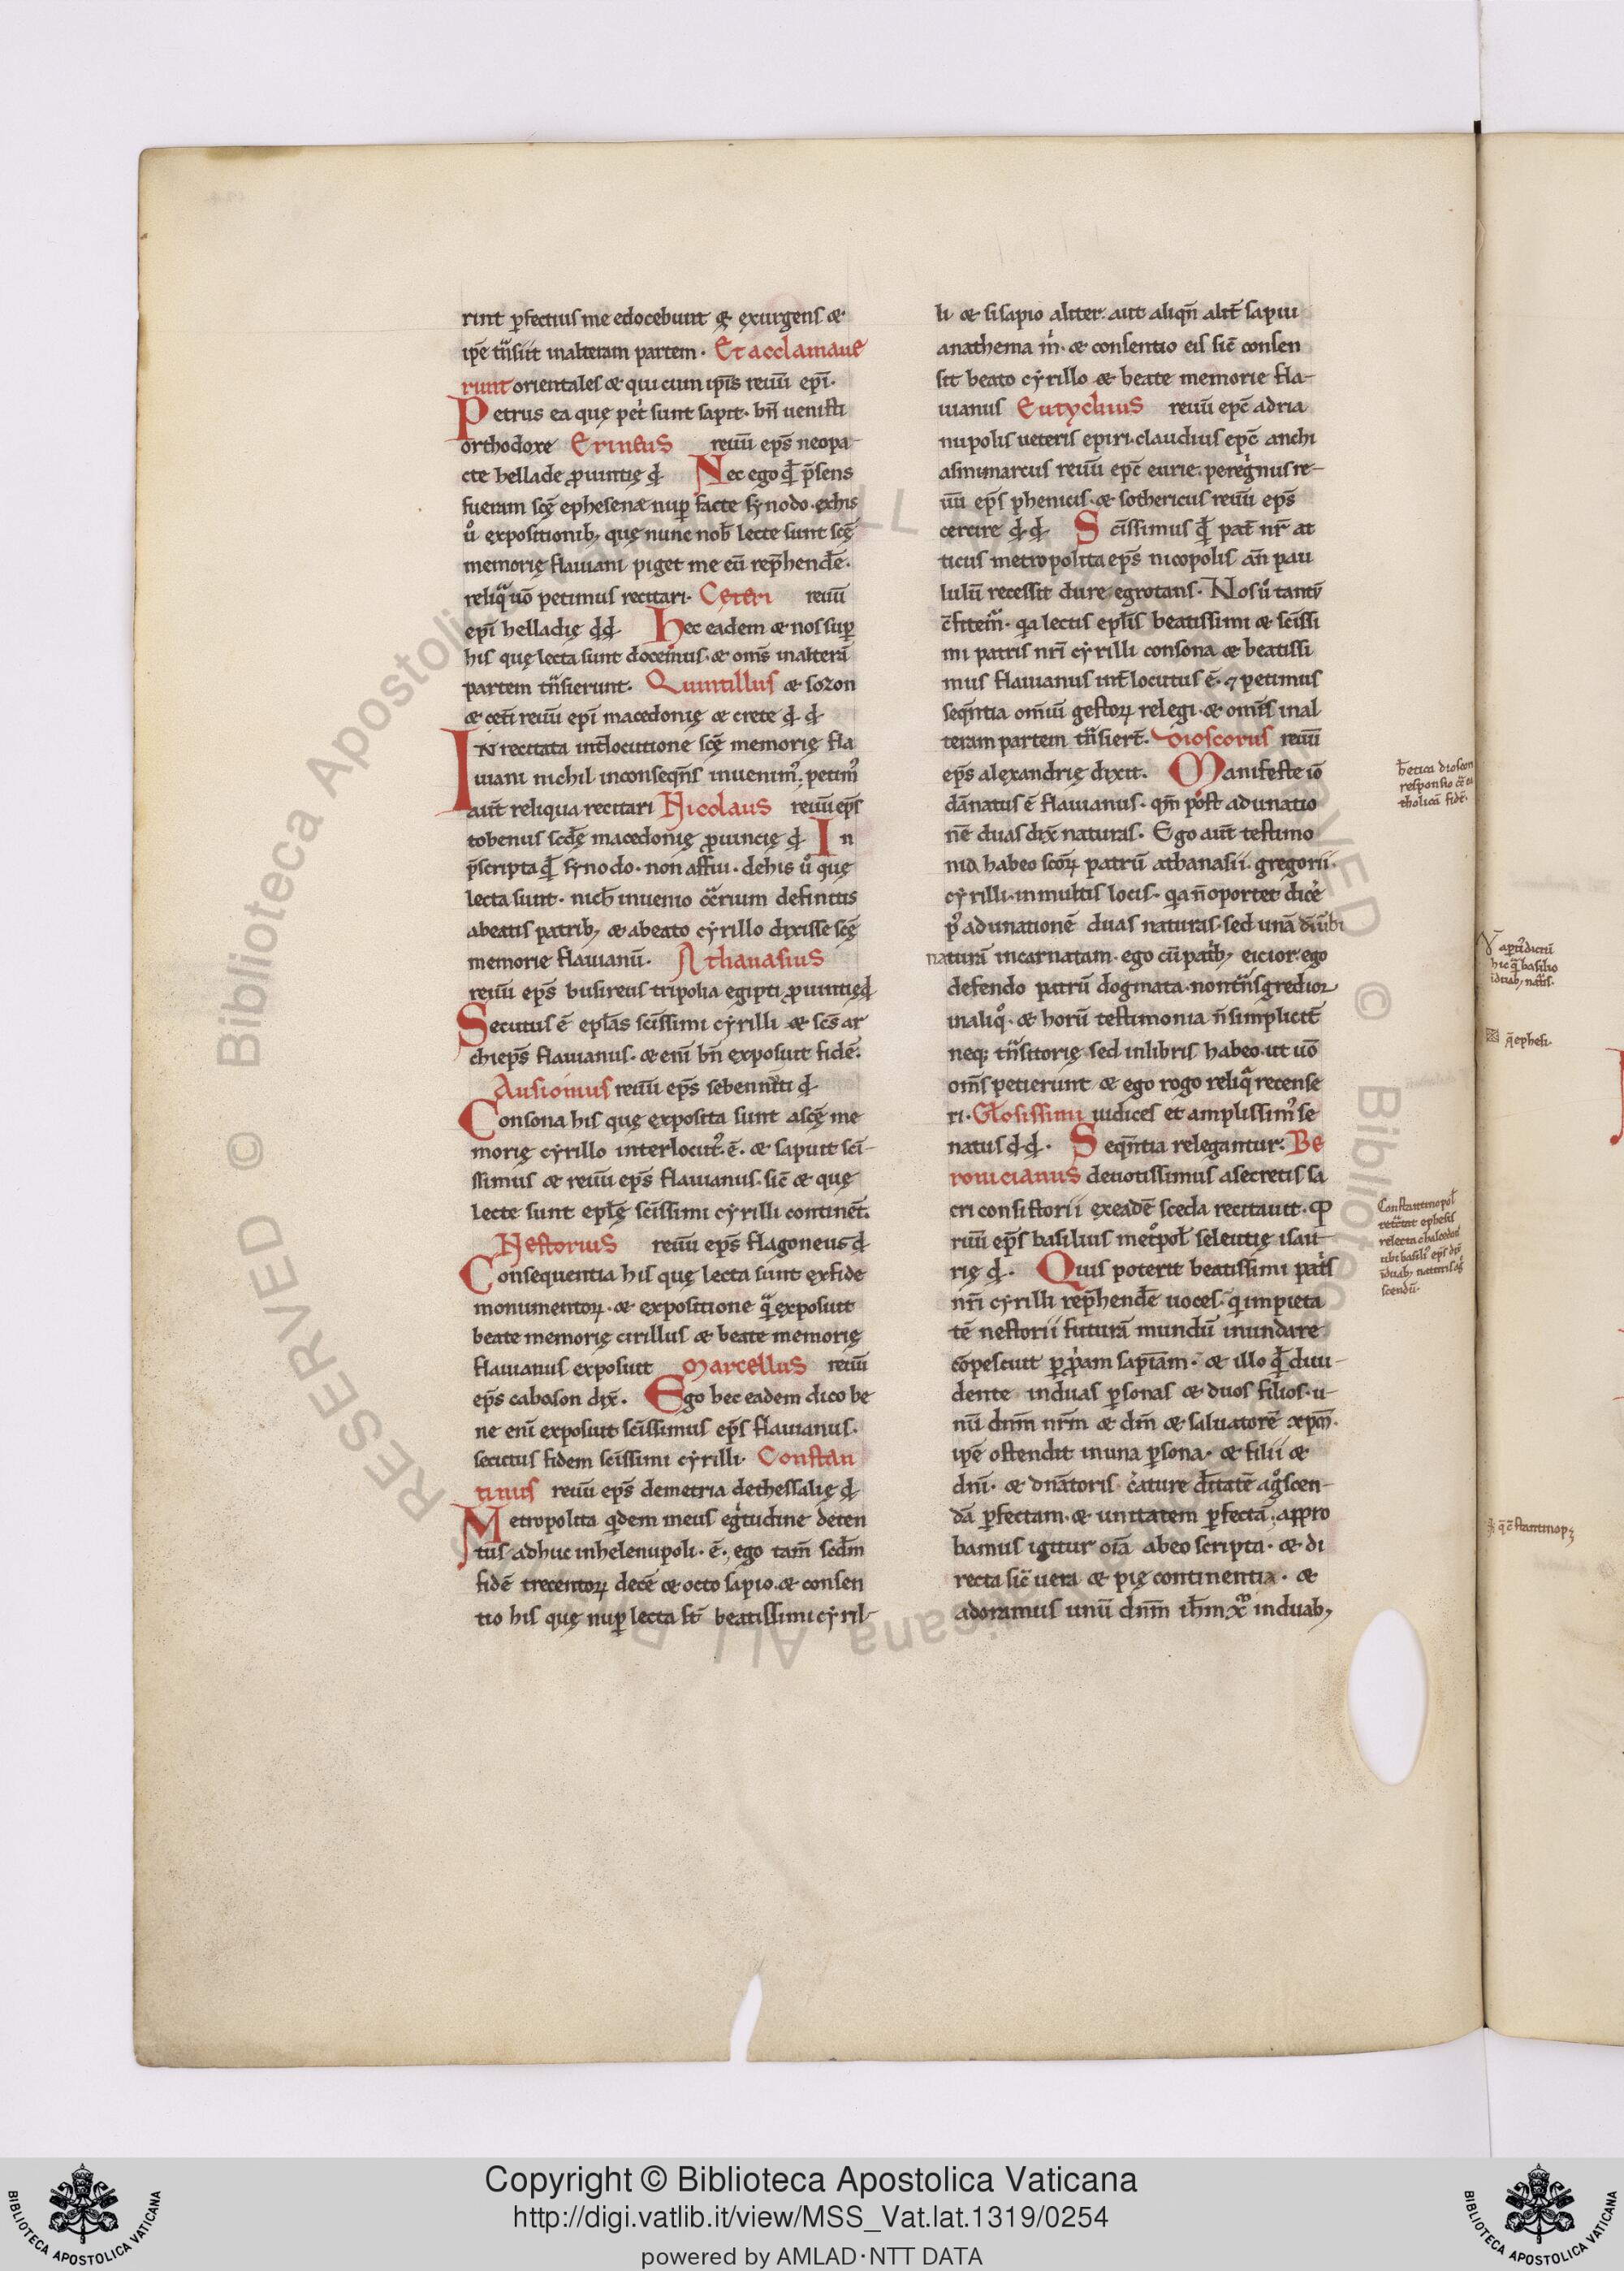 rint ꝑfectius me edocebunt & exurgens &
ipē tn̄siit inalteram partem · Et acclamaue
runt orientales & qui cum ipīs reuū epī·
Petrus ea quę pet͛ sunt sapit· bn̄ uenisti
orthodoxe Erineus reuū ep̄s neopa-
cte hellade ꝓuintię đ Nec ego qđ p̄sens
fueram scē ephesenæ nuꝑ facte synodo· exhis
ů expositionib; quę nunc nob̄ lecte sunt scę̄
memorię flauiani piget me eū rep̄hendē·
reliq̄ uō petimus recitari· Ceteri reuū
epī helladię đđ Hec eadem & nos suꝑ
his quę lecta sunt docemus· & om̄s inalterā
partem tn̄sierunt· Quintillus & sozon
& cet͛i reuū epī macedonię & crete đ đ
IN recitata int̄locutione scę̄ memorię fla
uiani nichil inconseqn̄s inuenim᷒; petim᷒
aut̄ reliqua recitari Nicolaus reuū ep̄s
tobenus scdę̄ macedonię ꝓuincię đ In
p̄scripta qđ synodo· non affui· dehis ů quę
lecta sunt· nich̄ inuenio ct̄rium definitis
abeatis patrib; & abeato cyrillo dixisse scę̄
memorie flauianū· Athanasius
reuū ep̄s busireus tripolia egipti ꝓuintię đ
Secutus ē epl̄as scīssimi cyrilli & scs̄ ar
chiep̄s flauianus· & enī bn̄ exposuit fidē·
Ausionius reuū ep̄s sebenniti đ
Consona his quę exposita sunt ascę̄ me
morię cyrillo interlocut᷒· ē· & sapuit scī-
ssimus & reuū ep̄s flauianus· sic̄ & quę
lecte sunt eplę̄ scīssimi cyrilli continēt·
Nestorius reuū ep̄s flagoneus đ
Consequentia his quę lecta sunt exfide
monumentoꝝ· & expositione q̄ exposuit
beate memorię cirillus & beate memorię
flauianus exposuit Marcellus reuū
ep̄s cabason dix̄· Ego hec eadem dico be
ne enī exposuit scīssimus ep̄s flauianus·
secutus fidem scīssimi cyrilli· Constan
tinus reuū ep̄s demetria dethessalię đ
Metropolita qdem meus eg͛tudine deten
tus adhuc inhelenupoli· ē· ego tam̄ scdm̄
fidē trecentoꝝ decē & octo sapio· & consen
tio his quę nuꝑ lecta st̄ beatissimi cyril-
li· & si sapio aliter· aut aliqn̄ alit̄ sapiu
anathema m͛· & consentio eis sic̄ consen
sit beato cyrillo & beate memorie fla-
uianus Eutychius reuū epc̄ adria
nupolis ueteris epiri· claudius epc̄ anchi
asmi· marcus reuū epc̄ eurie· pereg͛nus re-
uū ep̄s phenicis· & sothericus reuū ep̄s
cercire đ đ Scīssimus qđ pat̄ nr̄ at
ticus metropolita ep̄s nicopolis an̄ pau
lulū recessit dure egrotans· Nos ů tantū
c̄fitem᷒· qa lectis epl̄is beatissimi & scīssi
mi patris nr̄i cyrilli consona & beatissi
mus flauianus int̄locutus ē· ⁊ petimus
seqn̄tia om̄iū gestoꝝ relegi· & om̄s inal
teram partem tn̄siert̄· Dioscorus reuū
ep̄s alexandrię dixit· Manifeste iō
dānatus ē flauianus· qm̄ post adunatio
nē duas dix̄ naturas· Ego aut̄ testimo
nia habeo scōꝝ patrū athanasii· gregorii·
cyrilli· inmultis locis· qa n̄ oportet dic͛e
p᷒ adunationē duas naturas· sed unā dī ūbi
naturā incarnatam· ego cū patͥb; eicior· ego
defendo patrū dogmata· non tn̄sgredior
inaliqͦ· & horū testimonia n̄ simplicit̄
neq; tn̄sitorię sed inlibris habeo· ut uō
om̄s petierunt & ego rogo reliq̄ recense
ri· Gl̄osissimi iudices et amplissim᷒ se
natus đđ· Seqn̄tia relegantur· Be
ronicianus deuotissimus asecretis sa
cri consistorii exeadē sceda recitauit· Ꝙ
riuū ep̄s basilius met͛pol̄ seleutię isau-
rię đ· Quis poterit beatissimi patͥs
nr̄i cyrilli rep̄hendē uoces· q impieta
tē nestorii futurā mundū inundare
cōpescuit ꝑ ꝓpam sapīam· & illo qđ diui-
dente induas ꝑsonas & duos filios· u-
nū dnm̄ nr̄m & dm̄ & saluatorē xpm̄·
ipē ostendit inuna ꝑsona· & filii &
dn̄i· & dn̄atoris c͛ature d̄itatē agͦscen-
dā ꝑfectam· & unitatem ꝑfectā; appro
bamus igitur oīa abeo scripta· & di
recta sic̄ uera & pię continentia· &
adoramus unū dnm̄ ihm̄ xp̄ induab;
responsio
tholicā fidē·
hic q̄ basilio
q̄ ephesi·
Constantinopol̄
relecta chalcedon̄
Copyright © Biblioteca Apostolica Vaticana
http://digi.vatlib.it/view/MSS_Vat.lat.1319/0254
powered by AMLAD·NTT DATA
BIBLIOTECA APOSTOLICA VATICANA
BIBLIOTECA APOSTOLICA VATICANA